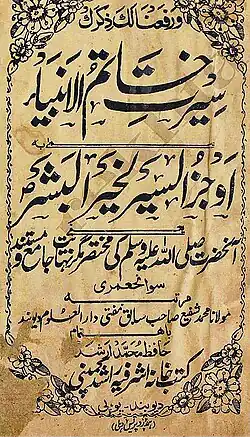 ورفعنا لك ذكرك
سیرت خاتم الانبیاء
اوجز السیر لخیر البشر
آنحضرت صلی اللہ علیہ وسلم کی مختصر مگر نہایت جامع و مستند
سوانح عمری
مرتبہ
مولانا محمد شفیع صاحب سابق مفتی دار العلوم دیوبند
باہتمام
حافظ محمد ارشد
کتب خانہ اشرفیہ راشد کمپنی
دیوبند۔ یو پی